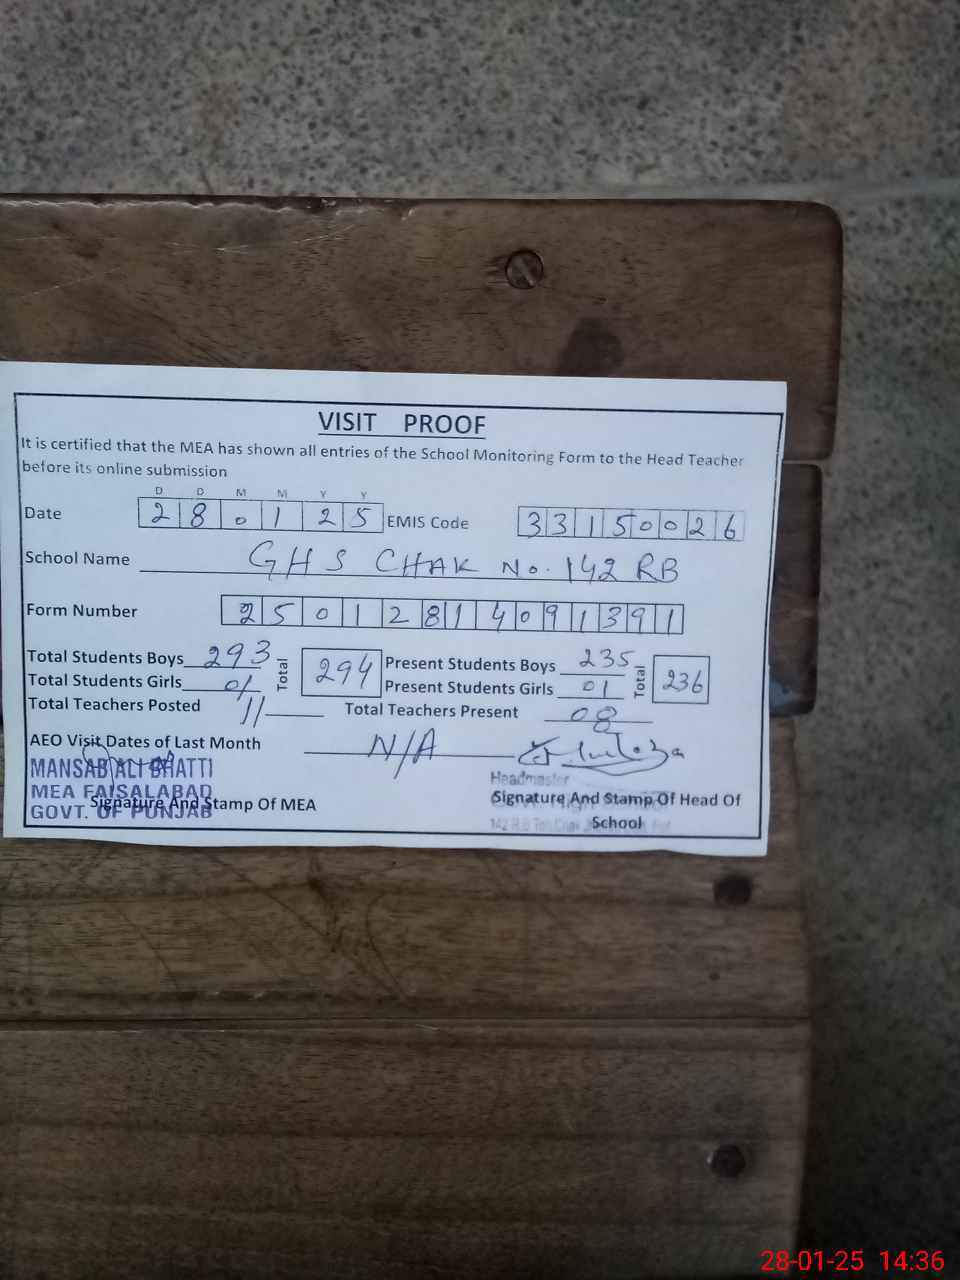 VISIT PROOF
It is certified that the MEA has shown all entries of the School Monitoring Form to the Head Teacher
before its online submission
D D M M Y Y
Date 2 8 0 1 2 5 EMIS Code 3 3 1 5 0 0 2 6
School Name GHS CHAK No. 142 RB
Form Number 2 5 0 1 2 8 1 4 0 9 1 3 9 1
Total Students Boys 293 Total 294 Present Students Boys 235 Total 236
Total Students Girls 01 Present Students Girls 01
Total Teachers Posted 11 Total Teachers Present 08
AEO Visit Dates of Last Month N/A
MANSAB ALI BHATTI
MEA FAISALABAD
GOVT. OF PUNJAB
Signature And Stamp Of MEA
Headmaster
Signature And Stamp Of Head Of
School
142 R.B
28-01-25 14:36